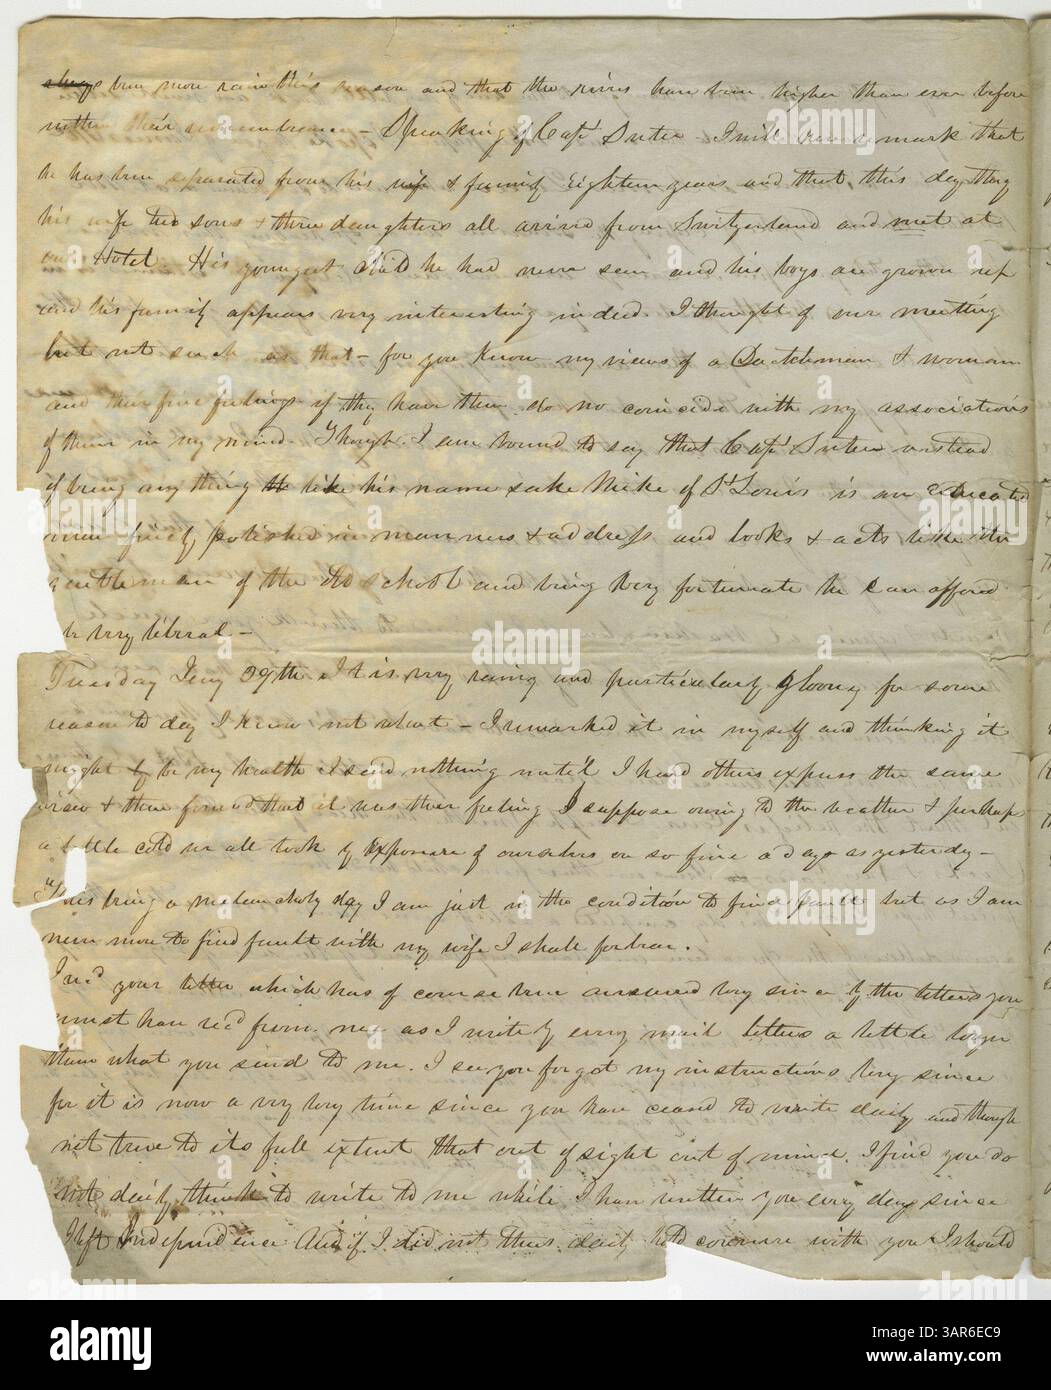 always been more rain this season and that the rivers have been higher than ever before
within their remembrance – Speaking of Capt Suter I will remark that
he has been separated from his wife & family Eighteen years and that this day they
his wife two sons & three daughters all arrived from Switzerland and met at
our Hotel His youngest child he had never seen and his boys are grown up
and his family appears very interesting indeed. I thought of our meeting
but not such as that – for you know my views of a Dutchman & woman
and their fine feelings if they have them do no coincide with my associations
of them in my mind. Though I am bound to say that Capt Suter instead
of being any thing like his name sake Mike of St Louis is an Educated
man finely polished in manners & address and looks & acts like the
gentleman of the Old school and being very fortunate he can afford
be very liberal –
Tuesday Jany 29th It is very rainy and particularly gloomy for some
reason to day I know not what – I remarked it in myself and thinking it
might be my health I said nothing until I heard others express the same
view & then found that it was their feeling I suppose owing to the weather & perhaps
a little cold we all took by exposure of ourselves on so fine a day as yesterday –
This being a melancholy day I am just in the condition to find fault but as I am
never more to find fault with my wife I shall forbear.
I recd your letter which has of course been answered long since by the letters you
must have recd from me as I write by every mail letters a little longer
than what you send to me. I see you forgot my instructions long since
for it is now a very long time since you have ceased to write daily and though
not true to its full extent that out of sight out of mind. I find you do
not daily think to write to me while I have written you every day since
I left Independence And if I did not thus daily hold converse with you I should
alamy
Image ID: 3AR6EC9
www.alamy.com